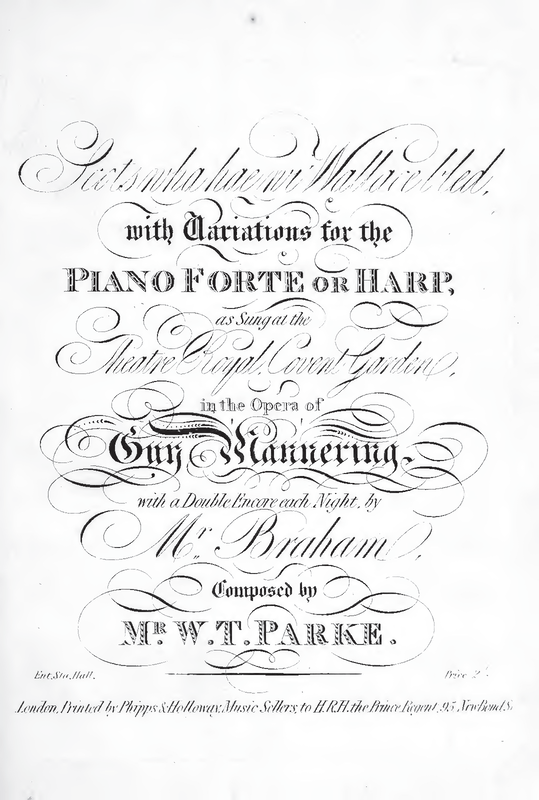 Scots wha hae wi' Wallace bled,
with Variations for the
PIANO FORTE OR HARP,
as Sung at the
Theatre Royal, Covent Garden,
in the Opera of
Guy Mannering,
with a Double Encore each Night, by
Mr. Braham,
Composed by
MR. W. T. PARKE.
Ent. Sta. Hall. Price 2/
London, Printed by Phipps & Holloway, Music Sellers, to H.R.H. the Prince Regent, 95 New Bond S.